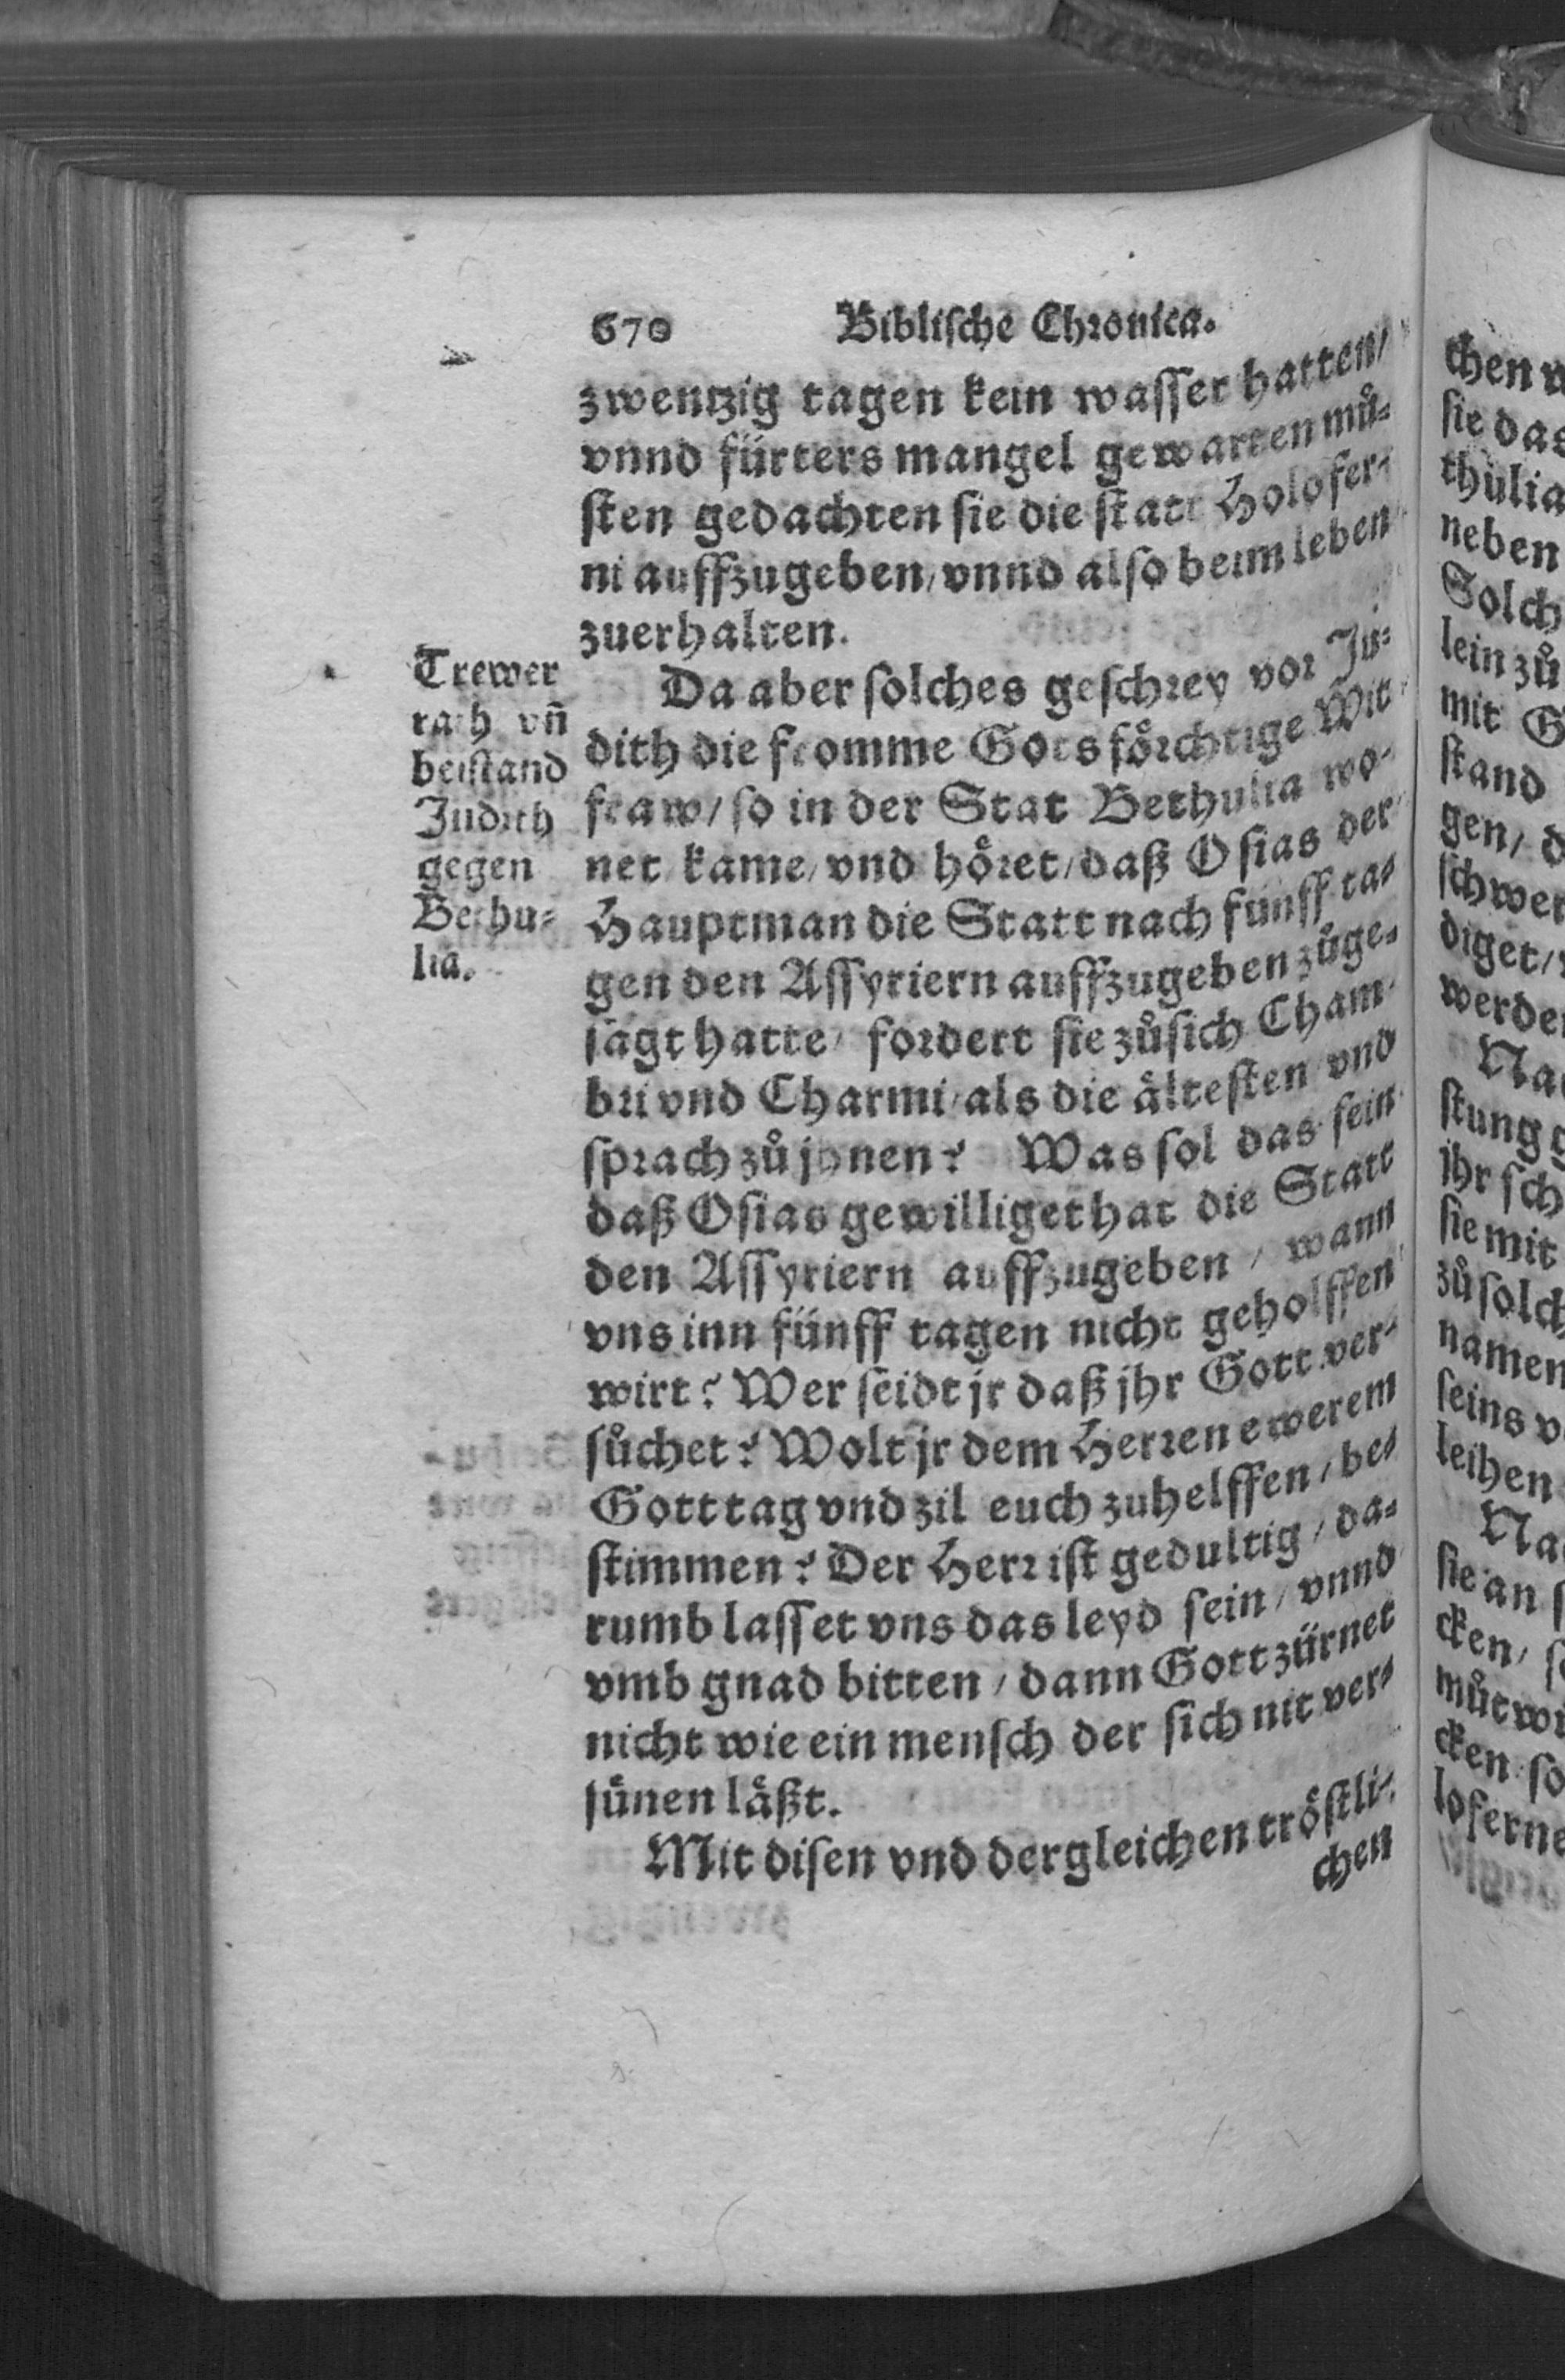 670 Biblische Chronica.
zwentzig tagen kein wasser hatten/
vnnd fürters mangel gewarten můs-
sten gedachten sie die statt Holofer-
ni auffzugeben/ vnnd also beim leben
zuerhalten.
Trewer
rath vñ
beistand
Judith
gegen
Bethu-
lia.
Da aber solches geschrey vor Ju-
dith die fromme Gots förchtige Wit
fraw/ so in der Stat Bethulia wo-
net kame/ vnd höret/ daß Osias der
Hauptman die Statt nach fünff ta-
gen den Assyriern auffzugeben zůge-
sagt hatte/ fordert sie zůsich Cham-
bri vnd Charmi/ als die ältesten vnd
sprach zů jhnen? Was sol das sein
daß Osias gewilliget hat die Statt
den Assyriern auffzugeben / wann
vns inn fünff tagen nicht geholffen
wirt? Wer seidt jr daß jhr Gott ver-
sůchet? Wolt jr dem Herren ewerem
Gott tag vnd zil euch zuhelffen / be-
stimmen? Der Herr ist gedultig / da-
rumb lasset vns das leyd sein / vnnd
vmb gnad bitten / dann Gott zürnet
nicht wie ein mensch der sich nit ver-
sünen läßt.
Mit disen vnd dergleichen tröstli-
chen
chen
sie das
thulia
neben
Solch
lein zů
mit G
stand
gen/ d
schwer
diget/
werde
Na
stung g
jhr sch
sie mit
zů solch
namen
seins v
leihen
Na
sie an s
cken/ s
můtwi
cken so
loferne